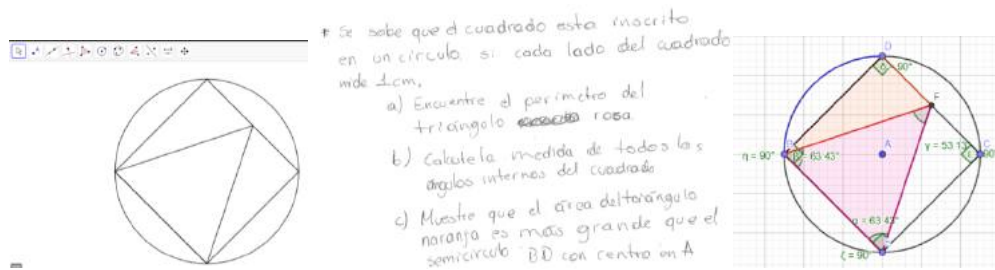 * Se sabe que el cuadrado esta inscrito
en un circulo si cada lado del cuadrado
mide 1cm,
a) Encuentre el perímetro del
triángulo rosa.
b) Calcule la medida de todos los
ángulos internos del cuadrado
c) Muestre que el área del triángulo
naranja es más grande que el
semicirculo BD con centro en A
D
90°
F
B
A
C
η = 90°
β = 63.43°
γ = 53.13°
90°
α = 63.43°
ζ = 90°